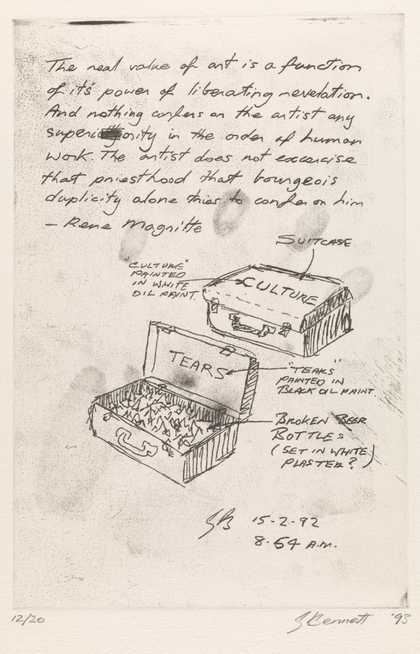 The real value of art is a function
of it's power of liberating revelation.
And nothing confers on the artist any
superiority in the order of human
work. The artist does not excercise
that priesthood that bourgeois
duplicity alone tries to confer on him
– Rene Magritte
SUITCASE
"CULTURE"
PAINTED
IN WHITE
OIL PAINT.
CULTURE
TEARS
"TEARS"
PAINTED IN
BLACK OIL PAINT.
BROKEN BEER
BOTTLES
(SET IN WHITE
PLASTER?)
GB 15-2-92
8.54 A.M.
12/20
G Bennett '93